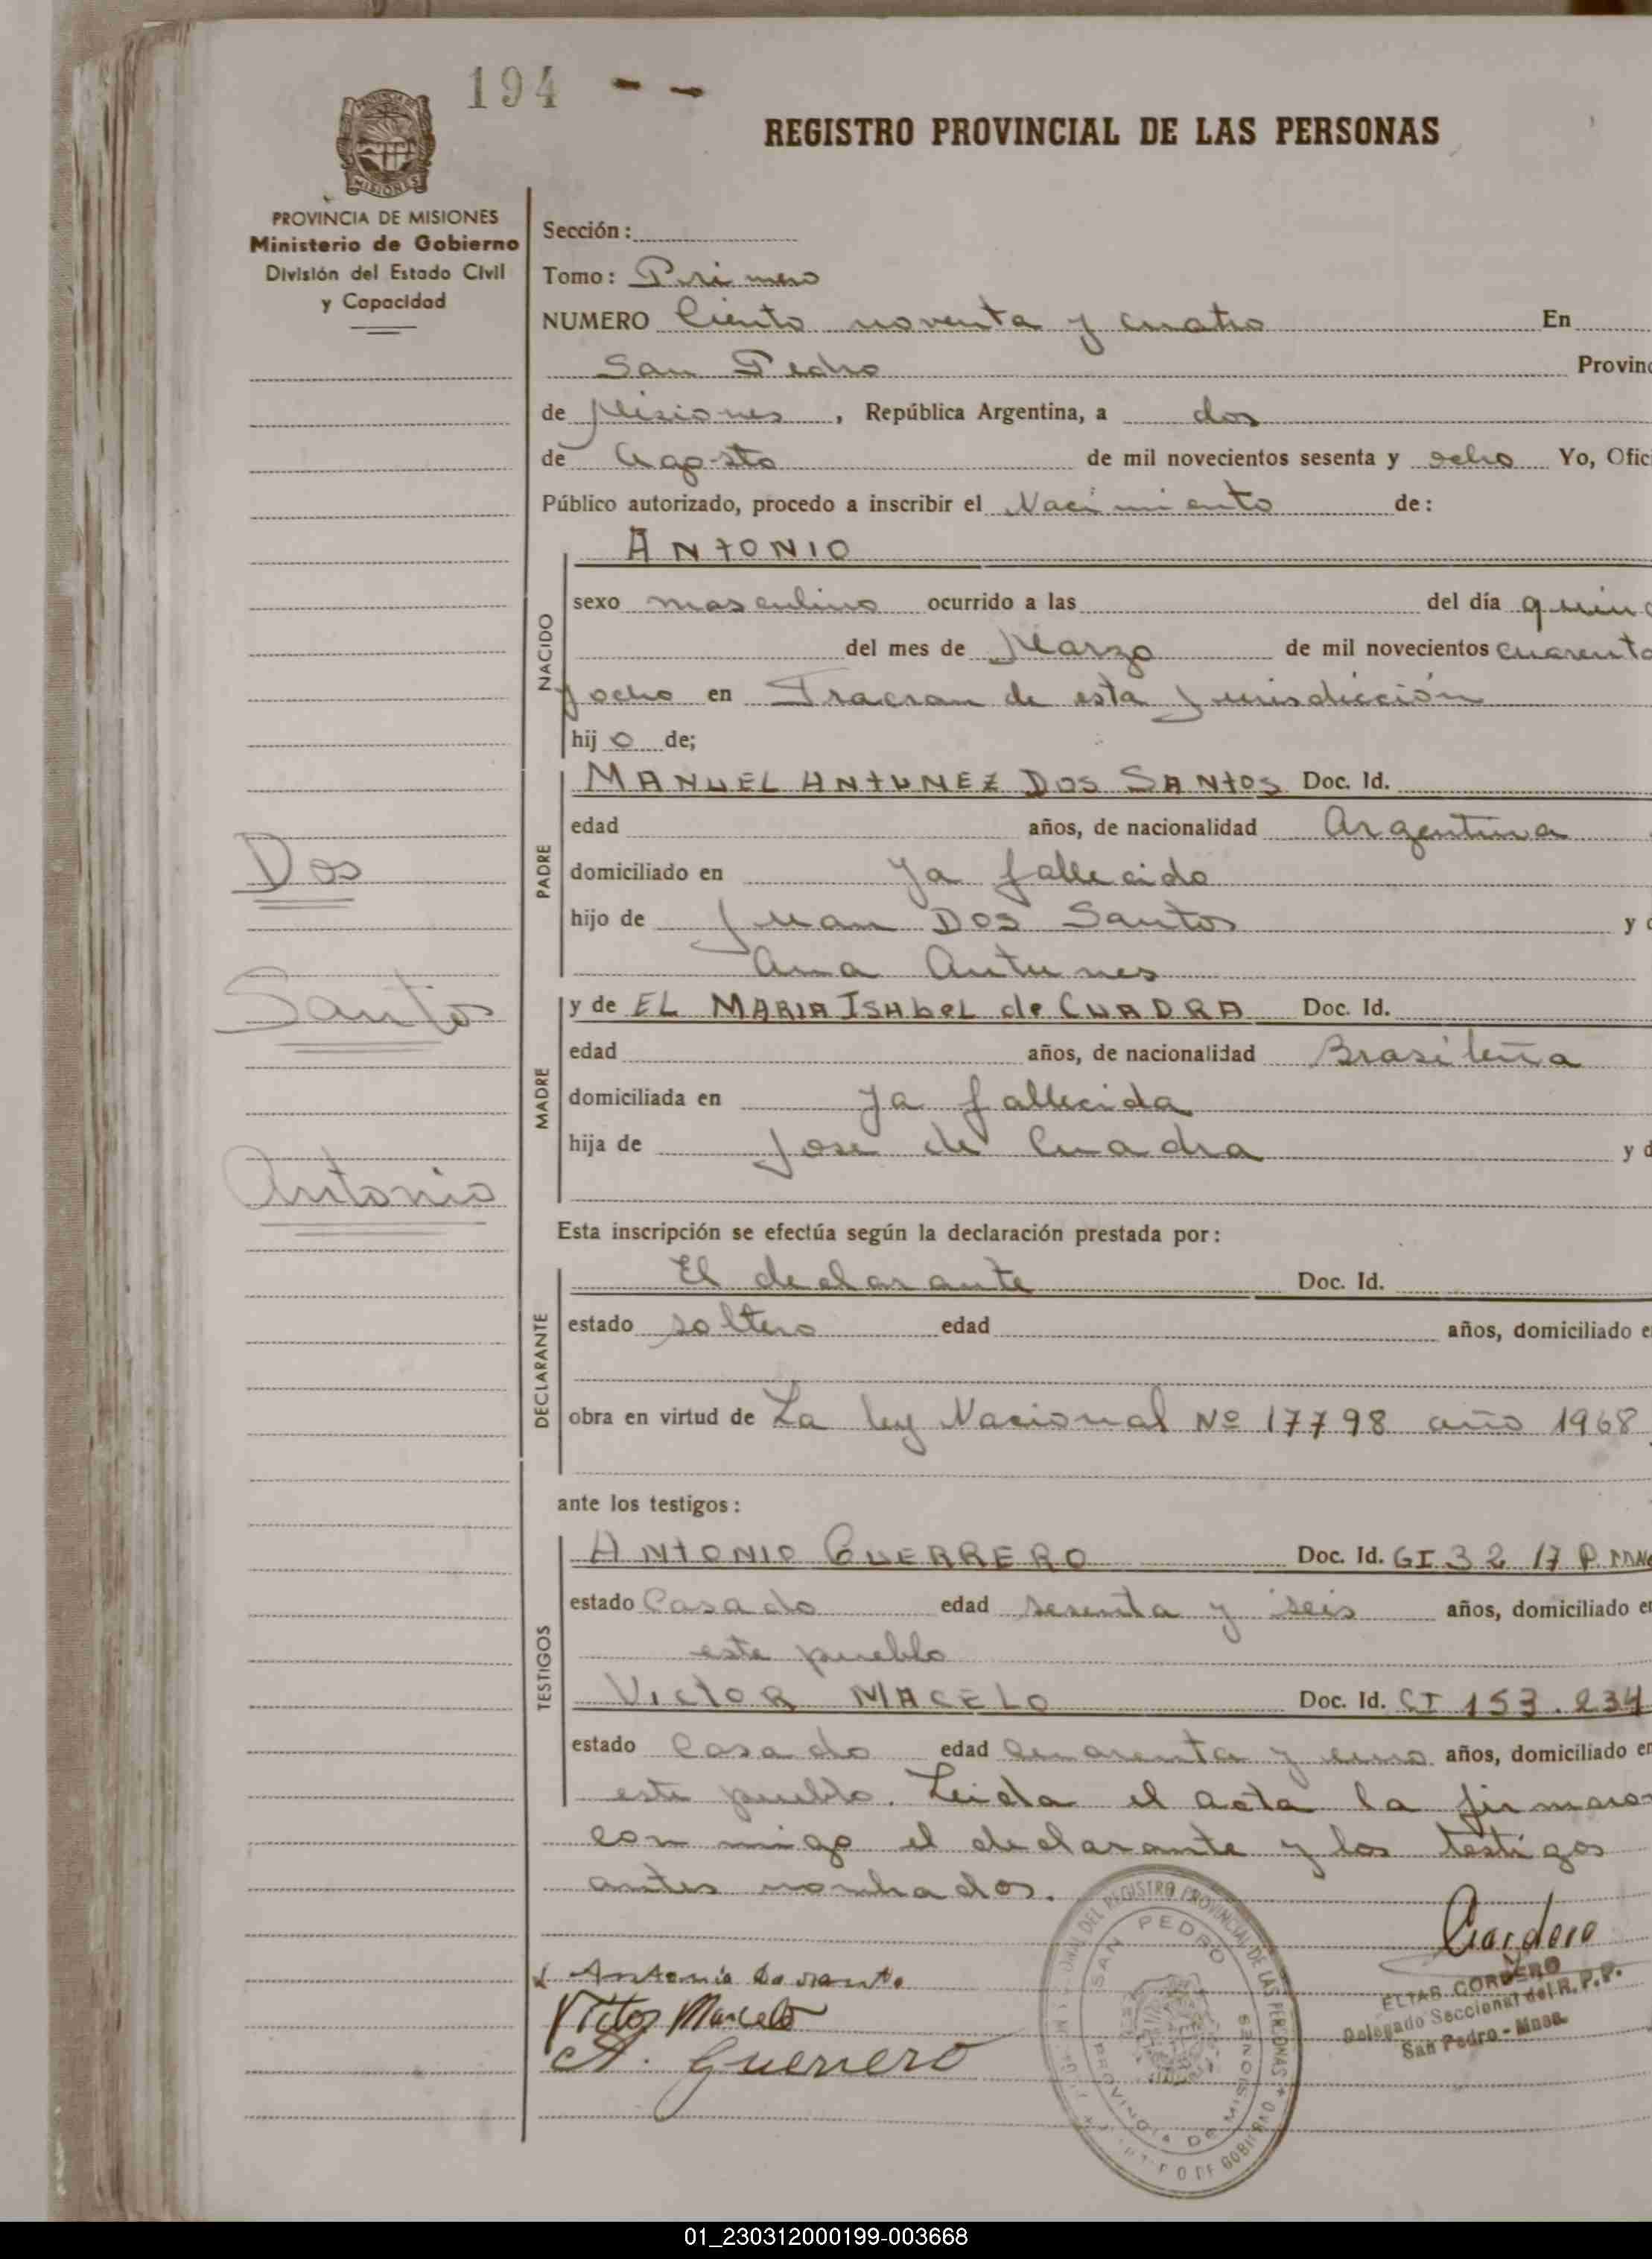 194 - -
PROVINCIA DE MISIONES
REGISTRO PROVINCIAL DE LAS PERSONAS
PROVINCIA DE MISIONES
Ministerio de Gobierno
División del Estado Civil
y Capacidad
Sección:
Tomo: Primero
NUMERO Ciento noventa y cuatro En
San Pedro Provinc
de Misiones, República Argentina, a dos
de Agosto de mil novecientos sesenta y ocho Yo, Ofici
Público autorizado, procedo a inscribir el Nacimiento de:
NACIDO
ANTONIO
sexo masculino ocurrido a las del día quinc
del mes de Marzo de mil novecientos cuarenta
y ocho en Tracran de esta Jurisdicción
hij o de;
PADRE
MANUEL ANTUNEZ DOS SANTOS Doc. Id.
edad años, de nacionalidad Argentina
domiciliado en Ya fallecido
hijo de Juan Dos Santos y d
Ana Antunes
Dos
Santos
Antonio
MADRE
y de EL MARIA ISABEL de CUADRA Doc. Id.
edad años, de nacionalidad Brasileña
domiciliada en Ya fallecida
hija de Jose de Cuadra y d
Esta inscripción se efectúa según la declaración prestada por:
DECLARANTE
El declarante Doc. Id.
estado soltero edad años, domiciliado e
obra en virtud de La ley Nacional Nº 17798 año 1968
ante los testigos:
TESTIGOS
ANTONIO GUERRERO Doc. Id. GI 32 17 P. MN
estado Casado edad sesenta y seis años, domiciliado en
este pueblo
VICTOR MACELO Doc. Id. CI 153.234
estado Casado edad cuarenta y uno años, domiciliado en
este pueblo. Leida el acta la firmaro
con migo el declarante y los testigos
antes nombados.
Cordero
ELIAS CORDERO
Delegado Seccional del R.P.P.
San Pedro - Mnes.
Antonio Do santo
Victor Marcelo
A. Guerrero
DEL REGISTRO PROVINCIAL DE LAS PERSONAS
SAN PEDRO
PROVINCIA DE MISIONES
DE GOBIERNO
01_230312000199-003668